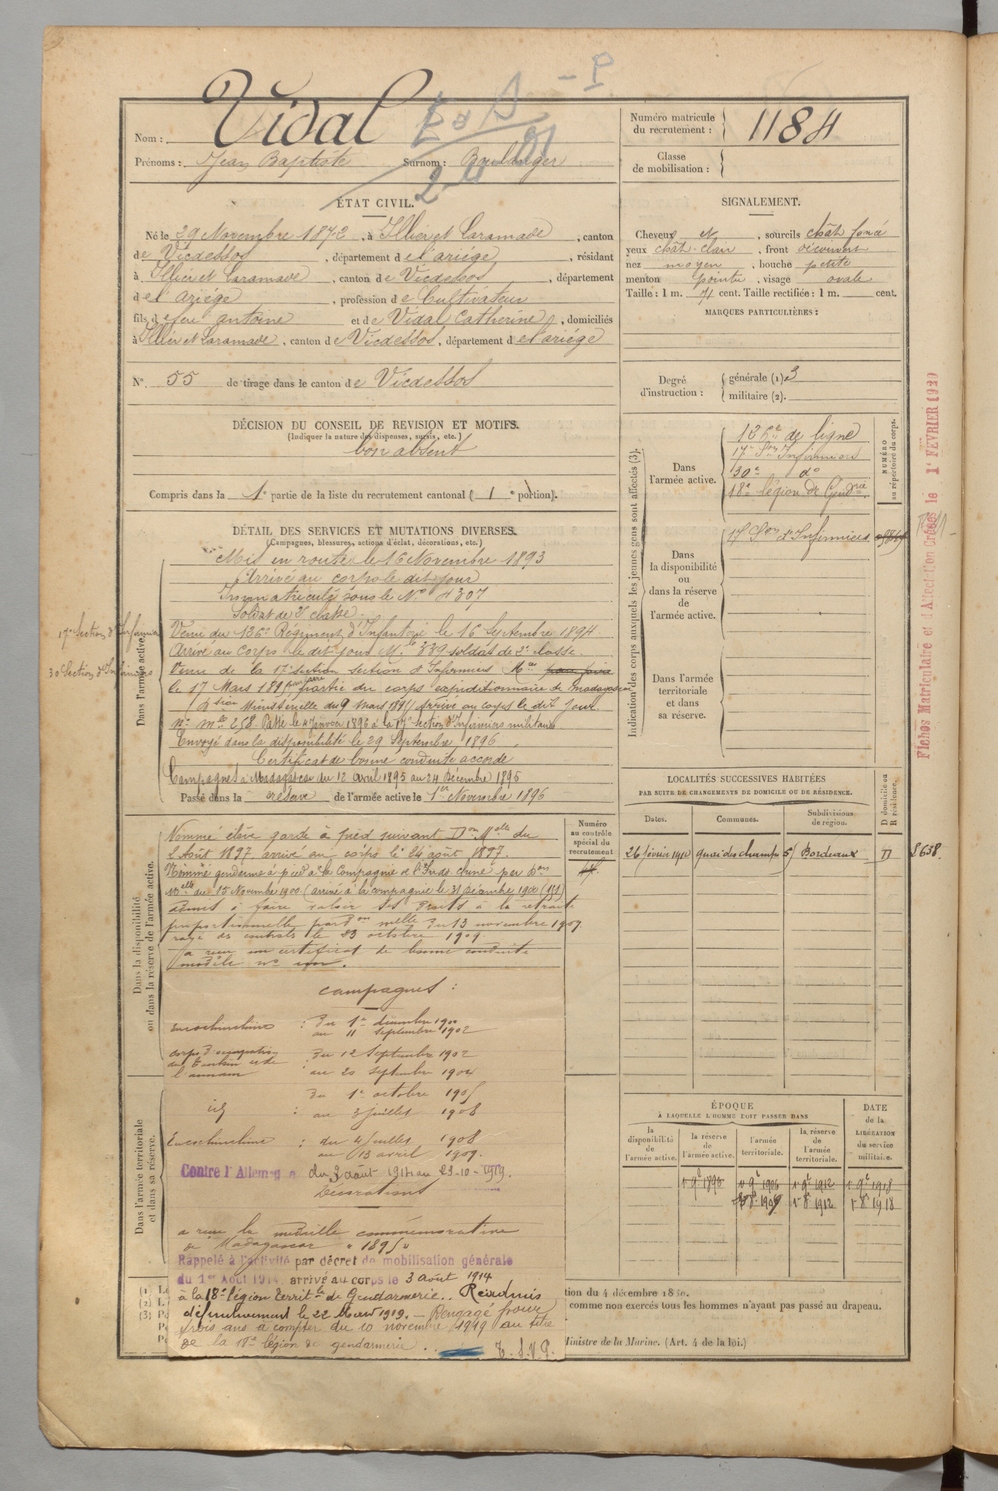 Nom : Vidal
Prénoms : Jean Baptiste Surnom : Boulanger
ÉTAT CIVIL.
Né le 29 Novembre 1872, à Illier et Laramade, canton
de Vicdessos, département de l'ariège, résidant
à Illier et Laramade, canton de Vicdessos, département
de l'ariège, profession de Cultivateur
fils de feu antoine et de Vidal Catherine, domiciliés
à Illier et Laramade, canton de Vicdessos, département de l'ariège
N°. 55 de tirage dans le canton de Vicdessos
DÉCISION DU CONSEIL DE REVISION ET MOTIFS.
(Indiquer la nature des dispenses, sursis, etc.)
bon absent
Compris dans la 1e partie de la liste du recrutement cantonal (1e portion).
DÉTAIL DES SERVICES ET MUTATIONS DIVERSES.
(Campagnes, blessures, actions d'éclat, décorations, etc.)
Dans l'armée active.
17e Section d'Infirmiers
30 Section d'Infirmiers
Mis en route le 16 Novembre 1893
Arrivé au corps le dit jour
Immatriculé sous le N° 4307
Soldat de 2e classe.
Venu du 136e Régiment d'Infanterie le 16 Septembre 1894
Arrivé au corps le dit jour M. le 339 soldat de 2e classe.
Venu de la 17e section d'Infirmiers Mres pour faire
le 17 Mars 1895 partie du corps expéditionnaire de Madagascar
Ministérielle du 9 mars 1895 Arrivé au corps le dit jour
N° Mle 258 Passé le 4 janvier 1896 à la 17e section d'Infirmiers militaires
Envoyé dans la disponibilité le 29 Septembre 1896
Certificat de bonne conduite accordé
Campagnes : Madagascar du 12 avril 1895 au 24 Décembre 1895
Passé dans la réserve de l'armée active le 1er Novembre 1896
Dans la disponibilité
ou dans la réserve de l'armée active.
Numéro
au contrôle
spécial du
recrutement
Nommé élève garde à pied suivant Don Melle du
2 Août 1897 arrivé au corps le 24 août 1897.
Nommé gendarme à pied à la Compagnie de l'Indo chine par Don
Melle du 15 Novembre 1900 (arrivé à la compagnie le 31 décembre 1900
admis à faire valoir ses droits à la retraite
proportionnelle par Don melle du 13 novembre 1907
rayé des controles le 23 octobre 1909
a reçu un certificat de bonne conduite
modèle n°
campagnes :
Cochinchine : du 1er décembre 1900
au 11 septembre 1902
corps d'occupation
du Tonkin et de
l'annam : du 12 septembre 1902
au 20 septembre 1904
id : du 1er octobre 1905
au 3 juillet 1908
Cochinchine : du 4 juillet 1908
au 13 avril 1909.
Contre l'Allemagne du 3 août 1914 au 23-10-1919.
Décorations
a reçu la médaille commémorative
de Madagascar "1895"
Rappelé à l'activité par décret de mobilisation générale
du 1er Août 1914, arrivé au corps le 3 août 1914
à la 18e légion territle de Gendarmerie. Réadmis
définitivement le 22 Mars 1919. — Rengagé pour
trois ans à compter du 10 novembre 1919 au titre
de la 18e légion de gendarmerie. T.S.V.P.
Dans l'armée territoriale
et dans sa réserve.
Numéro matricule
du recrutement : 1184
Classe
de mobilisation :
SIGNALEMENT.
Cheveux et, sourcils chât foncé
yeux chât-clair, front découvert
nez moyen, bouche petite
menton pointu, visage ovale
Taille : 1 m. 71 cent. Taille rectifiée : 1 m. cent.
MARQUES PARTICULIÈRES :
Degré
d'instruction :
générale (1). 3
militaire (2).
Indication des corps auxquels les jeunes gens sont affectés (3).
NUMÉRO
au répertoire du corps.
Dans
l'armée active.
136e de ligne
17e Son Infirmiers
30e do
18e légion de Gendrie
Dans
la disponibilité
ou
dans la réserve
de
l'armée active.
17 Son d'Infirmiers
Dans l'armée
territoriale
et dans
sa réserve.
LOCALITÉS SUCCESSIVES HABITÉES
PAR SUITE DE CHANGEMENTS DE DOMICILE OU DE RÉSIDENCE.
Dates.
Communes.
Subdivisions
de région.
D domicile ou
R résidence.
26 février 1910 quai des champs 5 Bordeaux D 8638.
ÉPOQUE
À LAQUELLE L'HOMME DOIT PASSER DANS
la
disponibilité
de
l'armée active.
la réserve
de
l'armée active.
l'armée
territoriale.
la réserve
de
l'armée
territoriale.
DATE
de la
LIBÉRATION
du service
militaire.
1 9e 1896 1 9e 1906 1 9e 1912 1 9e 1918
1 8e 1909 1 8e 1912 1 8e 1918
tion du 4 décembre 1889.
comme non exercés tous les hommes n'ayant pas passé au drapeau.
Ministre de la Marine. (Art. 4 de la loi.)
Fiches Matriculaire et d'Affectation Créées le 1er FÉVRIER 1920